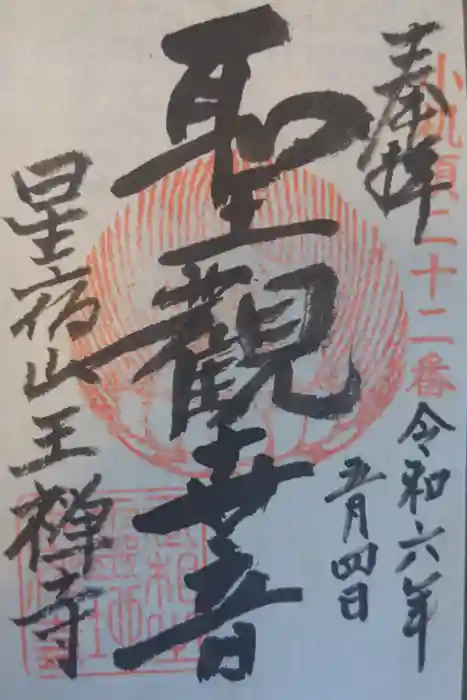 奉拝
小机領二十二番
令和六年
五月四日
聖觀世音
星宿山王禅寺